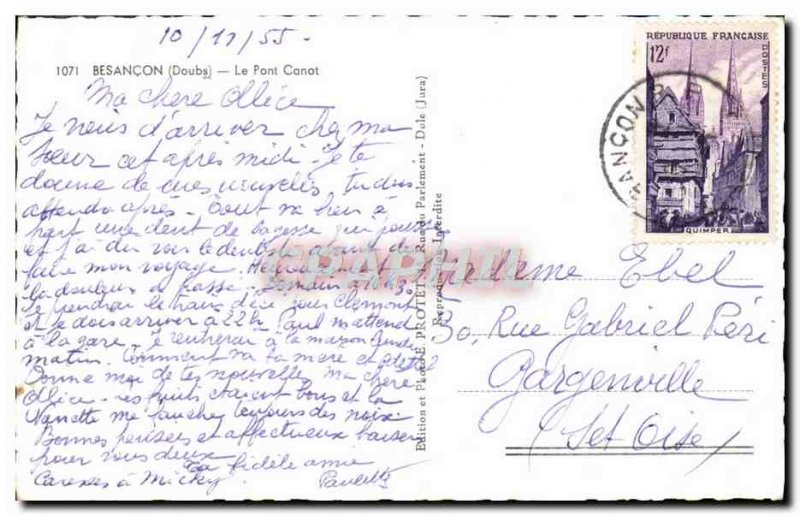 10/11/55 -
1071 BESANÇON (Doubs) — Le Pont Canot
Ma chère Alice
Je viens d'arriver chez ma
sœur cet après midi - Je te
donne de mes nouvelles tu dois
attendre après - Tout va bien à
part une dent de sagesse qui
et j'ai du voir le dentiste avant de
faire mon voyage.
la douleur a passé - Demain à 10h30
je prendrai le train pour Clermont
et je dois arriver à 22h Paul m'attend
à la gare - je rentrerai à la maison lundi
matin. Comment va ta mère et
Donne moi de tes nouvelle ma chère
Alice - étaient bons et la
Nanette me
Bonnes pensées et affectueux baisers
pour vous deux
ta fidèle amie
Caresses à Micky Paulette
Edition et Photo E. PROTET, Rue du Parlement - Dole (Jura)
Reproduction Interdite
RÉPUBLIQUE FRANÇAISE
12F
POSTES
QUIMPER
Madame Ebel
30, Rue Gabriel Péri
Gargenville
(Set Oise)